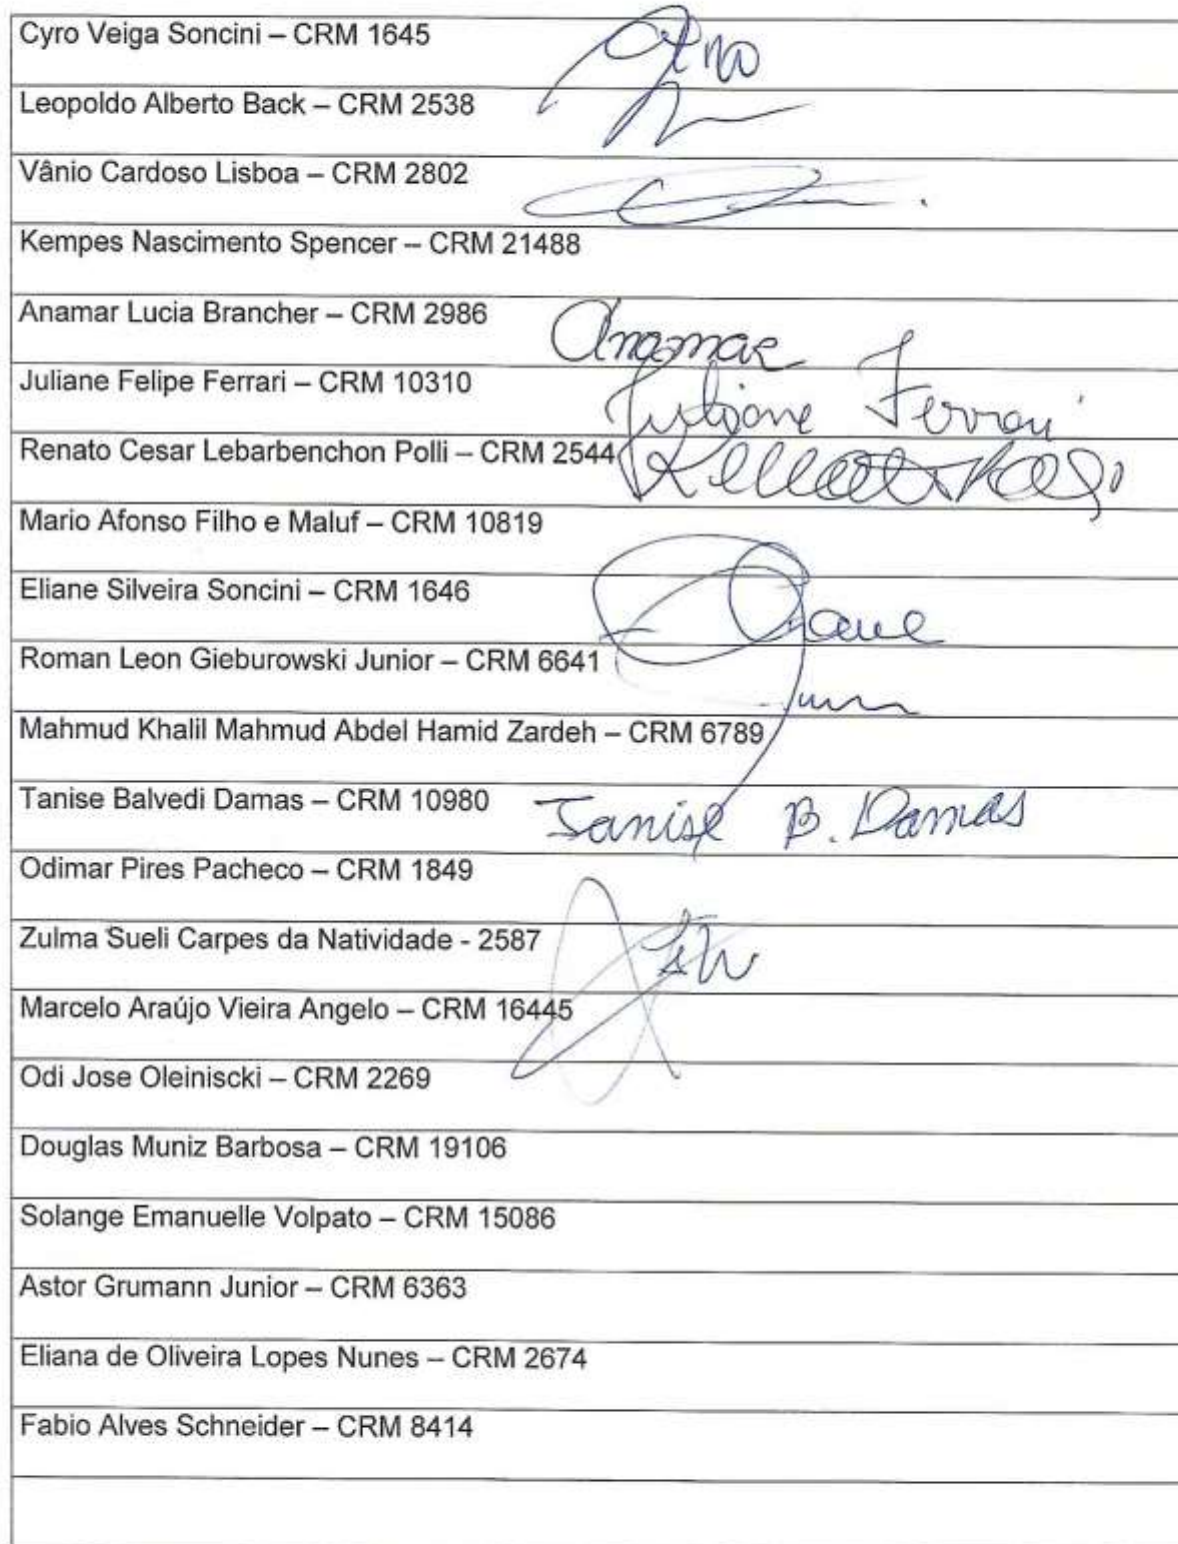 Cyro Veiga Soncini – CRM 1645
Leopoldo Alberto Back – CRM 2538
Vânio Cardoso Lisboa – CRM 2802
Kempes Nascimento Spencer – CRM 21488
Anamar Lucia Brancher – CRM 2986
Anamar
Juliane Felipe Ferrari – CRM 10310
Juliane Ferrari
Renato Cesar Lebarbenchon Polli – CRM 2544
Mario Afonso Filho e Maluf – CRM 10819
Eliane Silveira Soncini – CRM 1646
Roman Leon Gieburowski Junior – CRM 6641
Mahmud Khalil Mahmud Abdel Hamid Zardeh – CRM 6789
Tanise Balvedi Damas – CRM 10980
Tanise B. Damas
Odimar Pires Pacheco – CRM 1849
Zulma Sueli Carpes da Natividade - 2587
Marcelo Araújo Vieira Angelo – CRM 16445
Odi Jose Oleiniscki – CRM 2269
Douglas Muniz Barbosa – CRM 19106
Solange Emanuelle Volpato – CRM 15086
Astor Grumann Junior – CRM 6363
Eliana de Oliveira Lopes Nunes – CRM 2674
Fabio Alves Schneider – CRM 8414